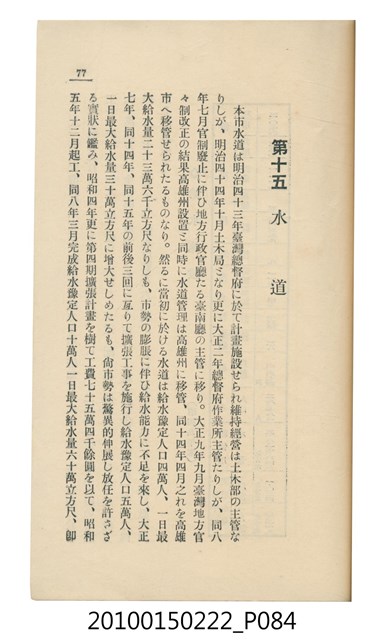 77
第十五　水道
本市水道は明治四十三年臺灣總督府に於て計畫施設せられ維持經營は土木部の主管な
りしが、明治四十四年十月土木局となり更に大正二年總督府作業所主管たりしが、同八
年七月官制廢止に伴ひ地方行政官廳たる臺南廳の主管に移り。大正九年九月臺灣地方官
々制改正の結果高雄州設置と同時に水道管理は高雄州に移管、同十四年四月之れを高雄
市へ移管せられたるものなり。然るに當初に於ける水道は給水豫定人口四萬人、一日最
大給水量二十三萬六千立方尺なりしも、市勢の膨脹に伴ひ給水能力に不足を來し、大正
七年、同十四年、同十五年の前後三回に亙りて擴張工事を施行し給水豫定人口五萬人、
一日最大給水量三十萬立方尺に增大せしめたるも、尙市勢は驚異的伸展し放任を許さざ
る實狀に鑑み、昭和四年更に第四期擴張計畫を樹て工費七十五萬四千餘圓を以て、昭和
五年十二月起工、同八年三月完成給水豫定人口十萬人一日最大給水量六十萬立方尺、卽
20100150222_P084